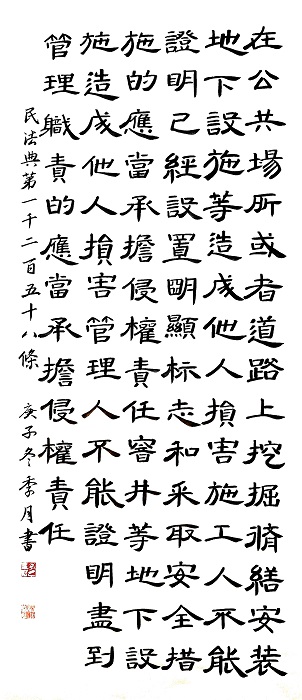 在公共場所或者道路上挖掘脩繕安裝
地下設施等造成他人損害施工人不能
證明已經設置明顯标志和采取安全措
施的應當承擔侵權責任窨井等地下設
施造成他人損害管理人不能證明盡到
管理職責的應當承擔侵權責任
民法典第一千二百五十八條 庚子冬季月書